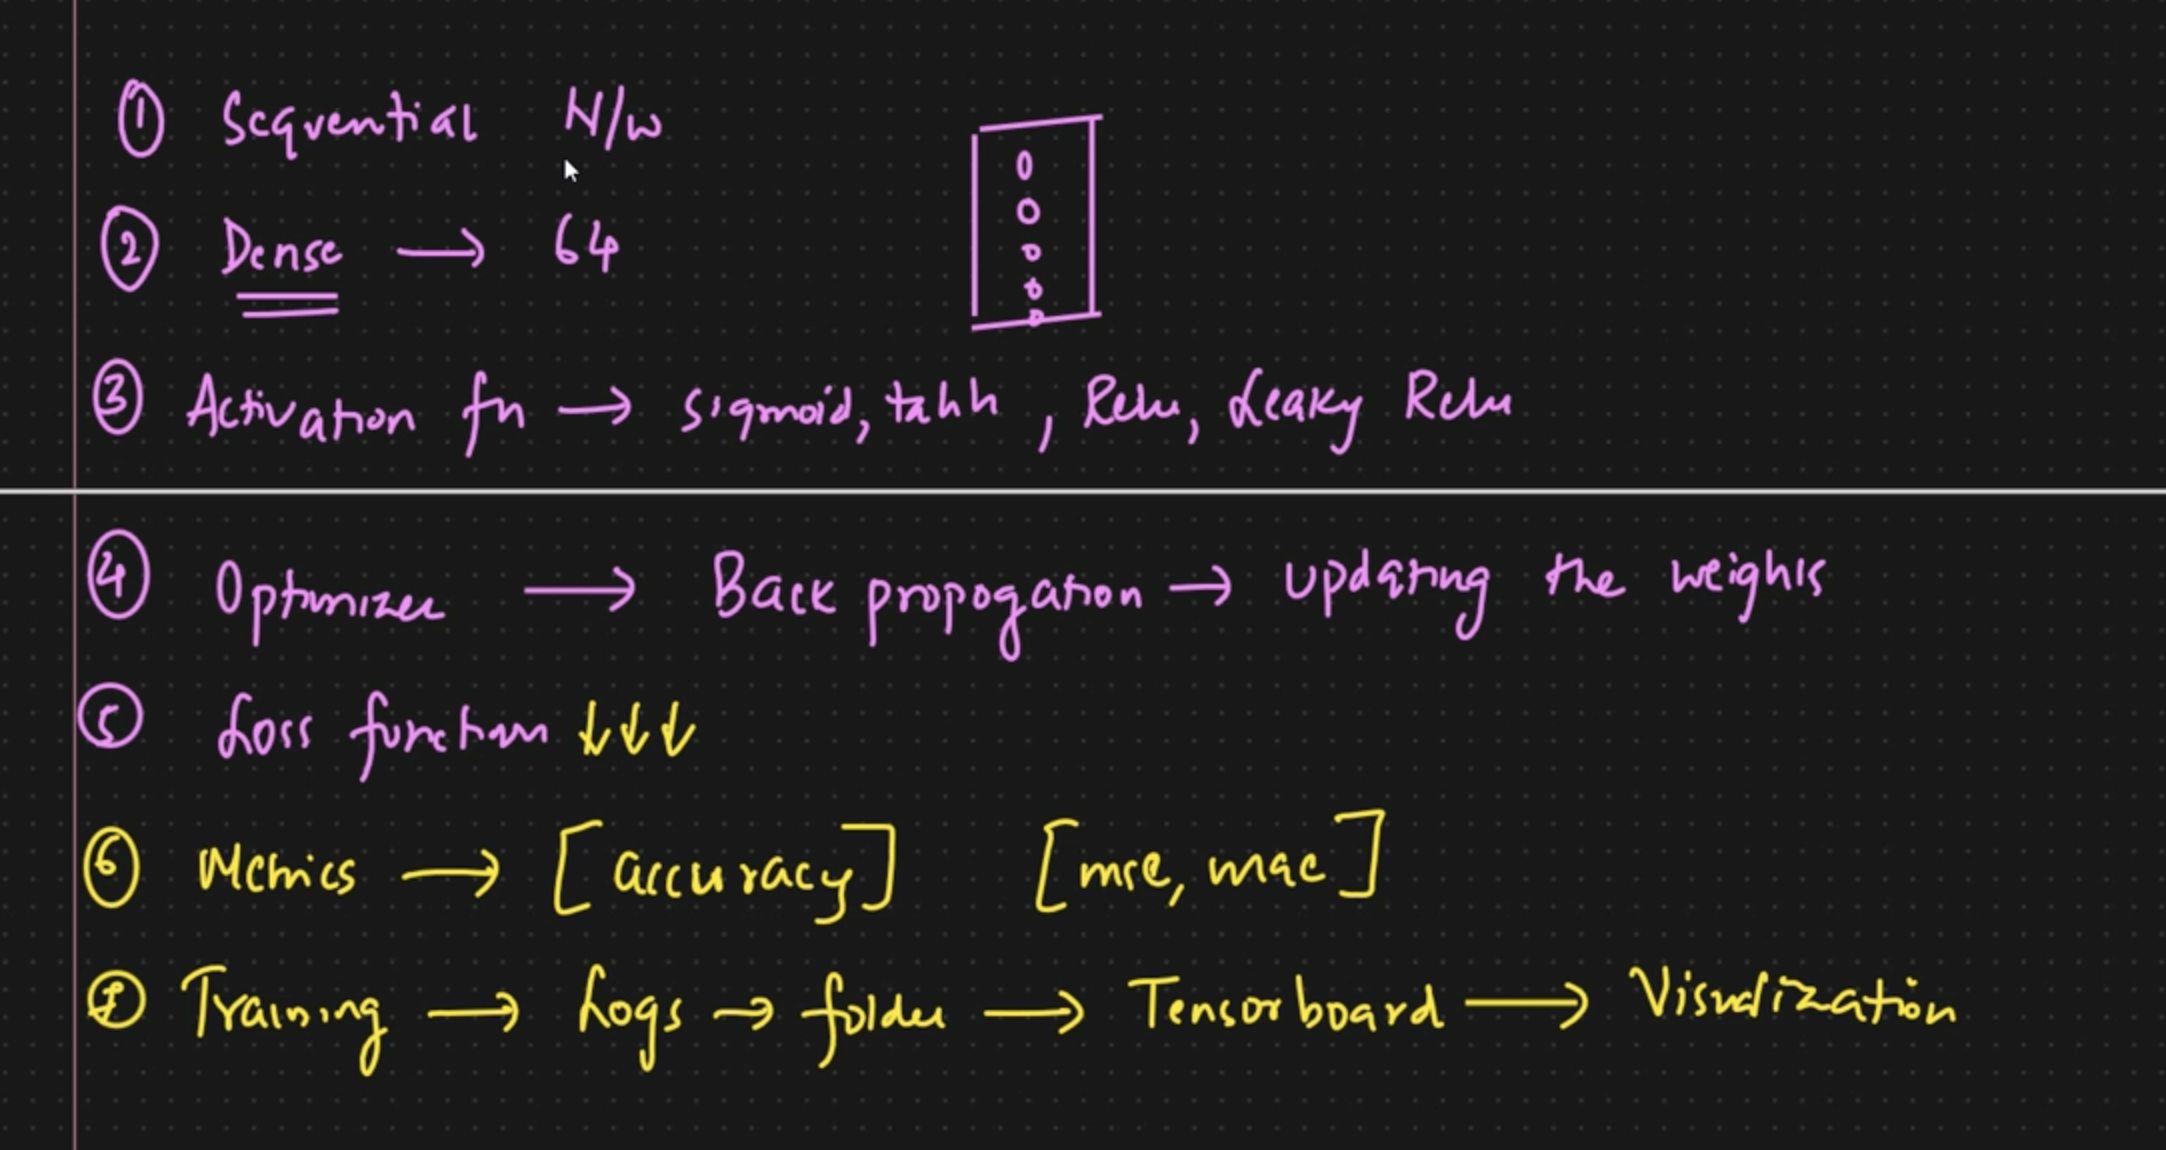 ① Sequential N/w
② Dense → 64
③ Activation fn → sigmoid, tanh , Relu, Leaky Relu
④ Optimizer → Back propogation → updating the weights
⑤ Loss function ↓↓↓
⑥ Metrics → [accuracy] [mse, mae]
⑦ Training → Logs → folder → Tensorboard → Visualization